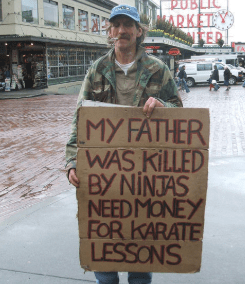 PUBLIC
MARKET
CENTER
MY FATHER
WAS KILLED
BY NINJAS
NEED MONEY
FOR KARATE
LESSONS